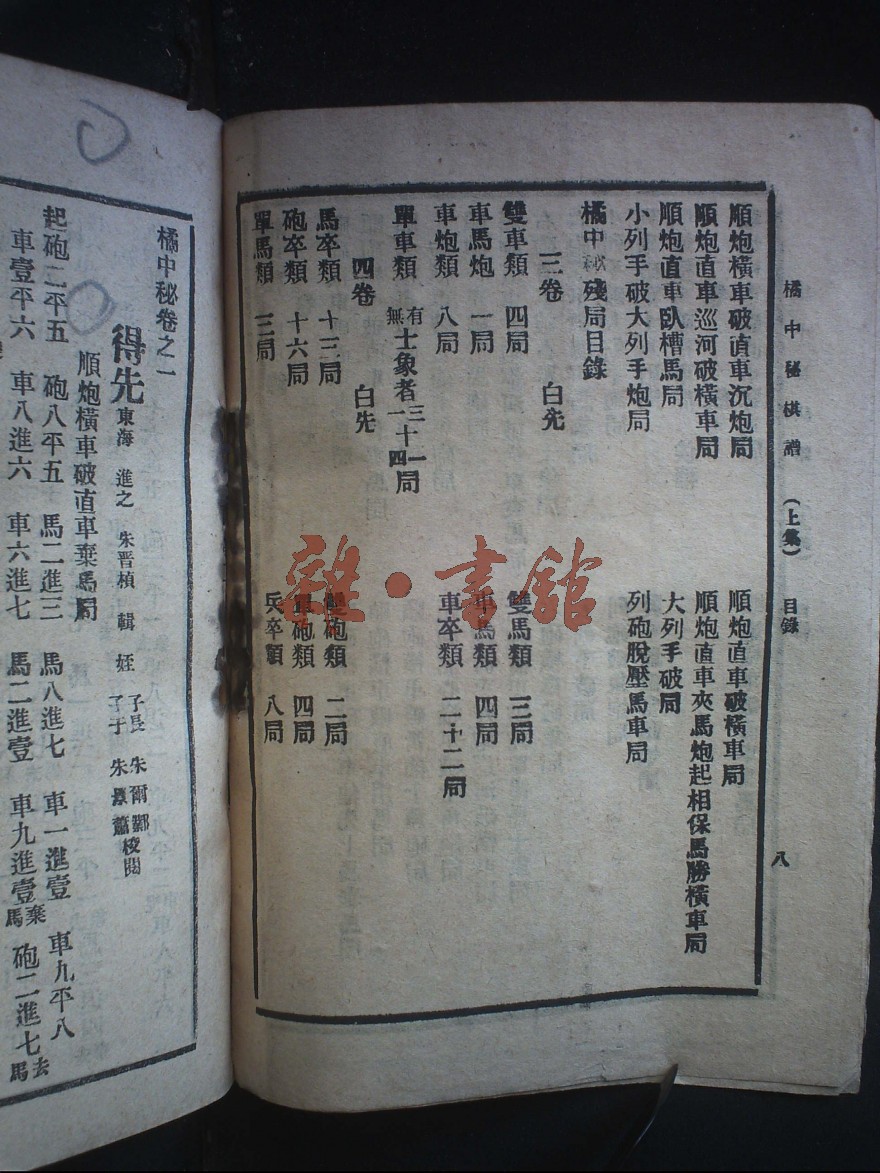 橘中秘棋譜 (上集) 目錄 八
順炮橫車破直車沉炮局 順炮直車破橫車局
順炮直車巡河破橫車局 順炮直車夾馬炮起相保馬勝橫車局
順炮直車臥槽馬局 大列手破局
小列手破大列手炮局 列砲脫壓馬車局
橘中秘殘局目錄
三卷 白先
雙車類 四局 雙馬類 三局
車馬炮 一局 車馬類 四局
車炮類 八局 車卒類 二十二局
單車類 有無士象者 三十一 一四局
四卷 白先
馬卒類 十三局 雙砲類 二局
砲卒類 十六局 單砲類 四局
單馬類 三局 兵卒類 八局
雜·書館
橘中秘卷之一
得先 東海 進之 朱晋楨 輯 姪 子長 朱爾鄴 子于 朱景蕭 校閱
順炮橫車破直車棄馬局
起砲二平五 砲八平五 馬二進三 馬八進七 車一進壹 車九平八
車壹平六 車八進六 車六進七 馬二進壹 車九進壹 棄馬 砲二進七 去馬